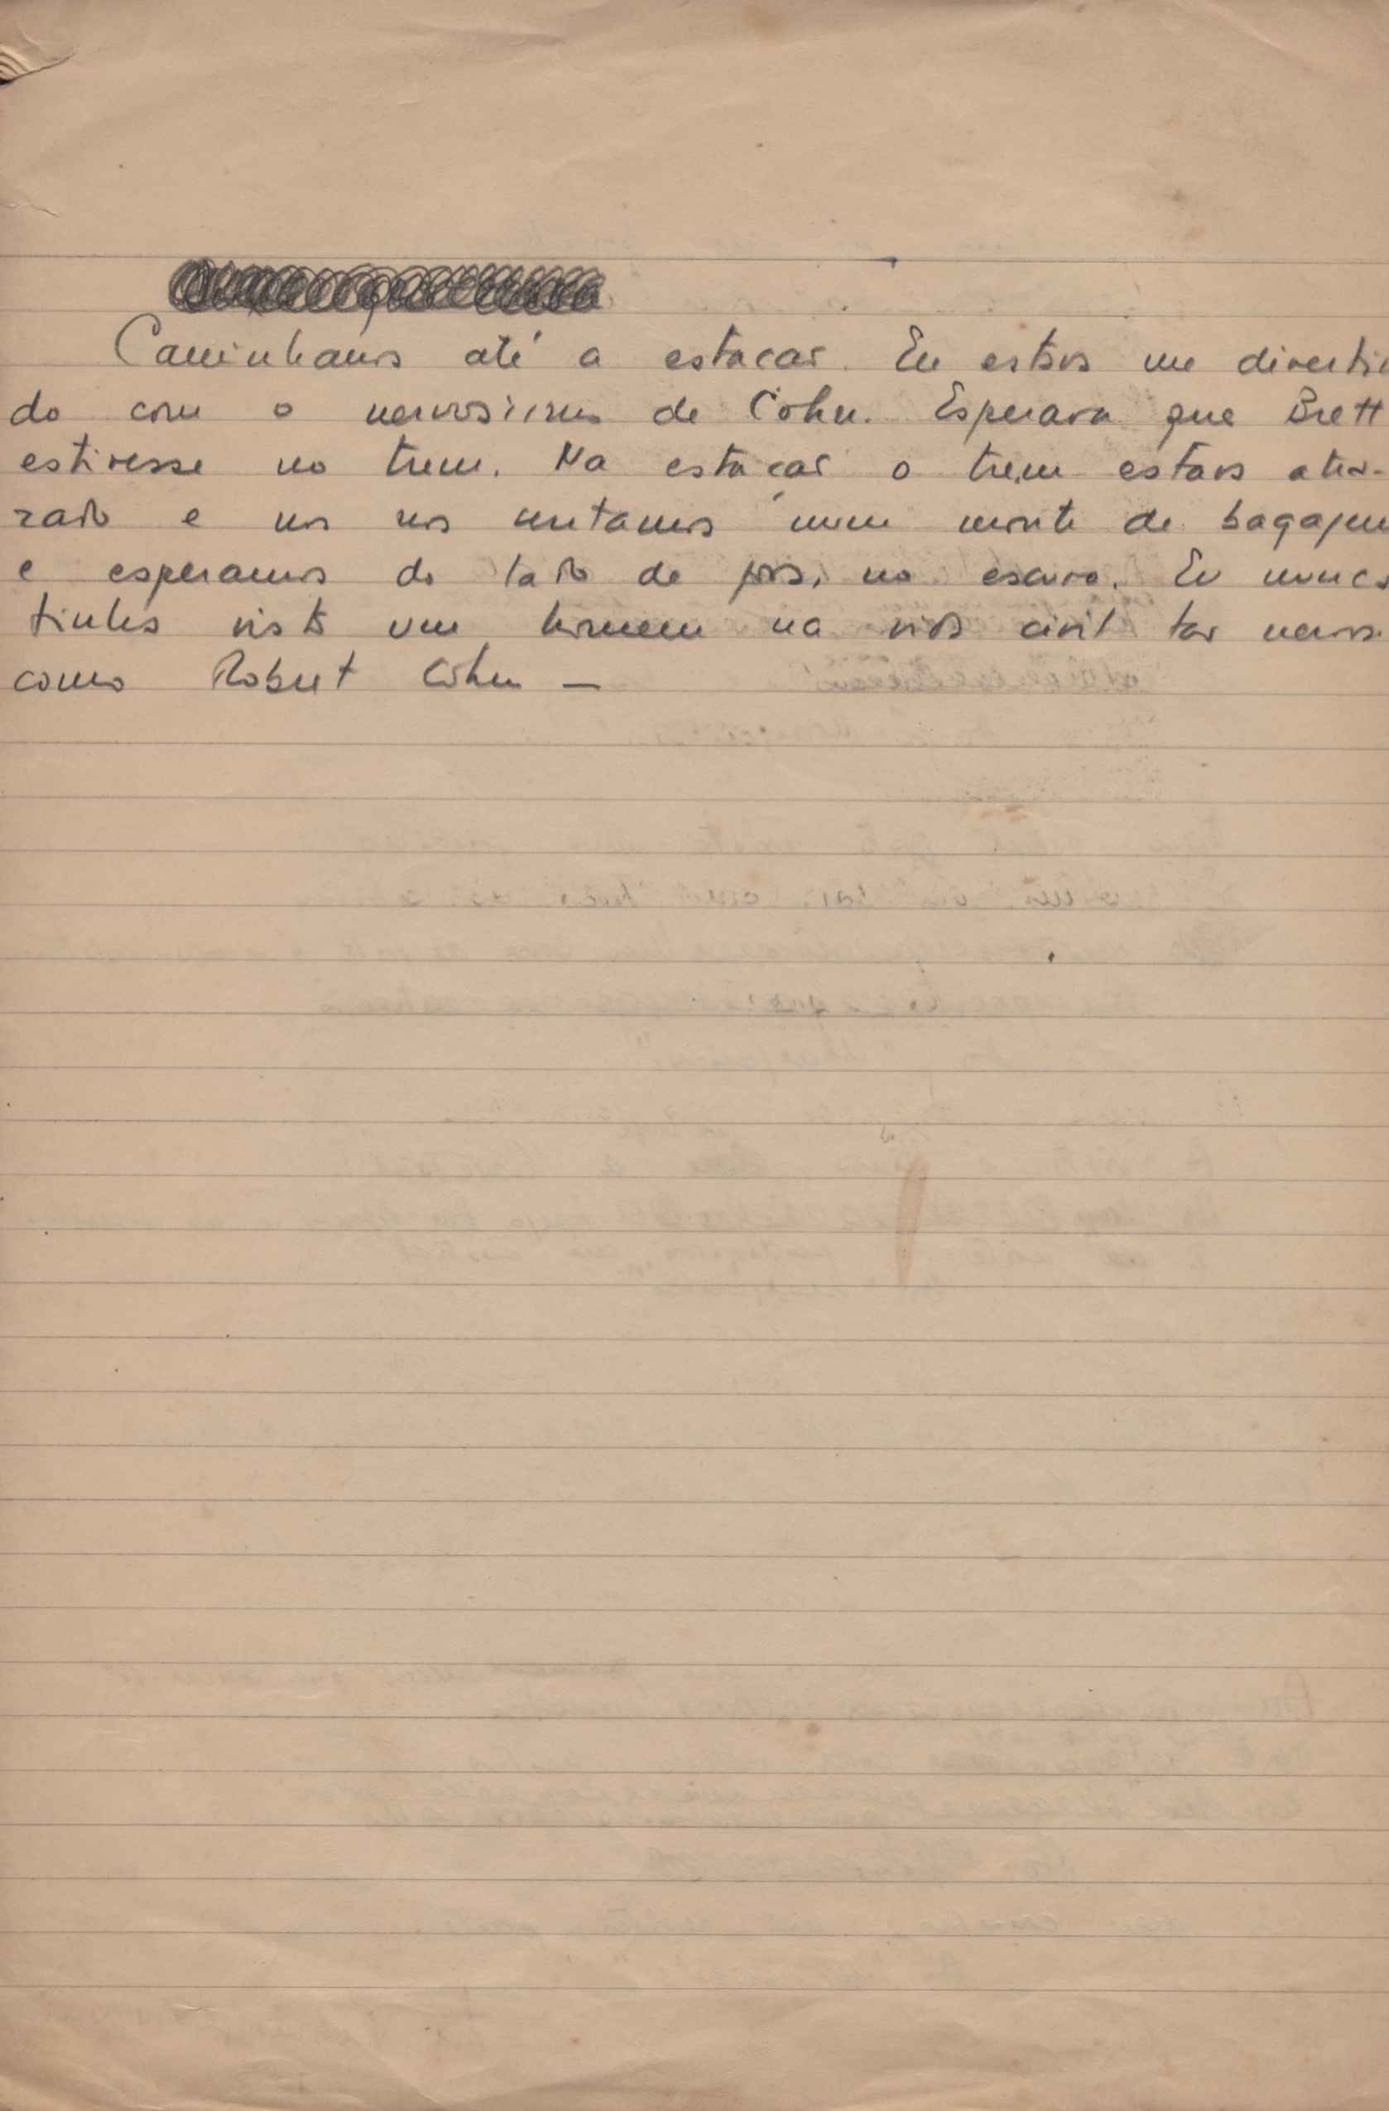 Caminhamos até a estacao. Eu estava me divertin
do com o nervosismo de Cohn. Esperava que Brett
estivesse no trem. Na estacao o trem estava atra-
zado e nos nos sentamos num monte de bagagem
e esperamos do lado de fora, no escuro. Eu nunca
tinha visto um homem na vida civil tao nervoso
como Robert Cohn —